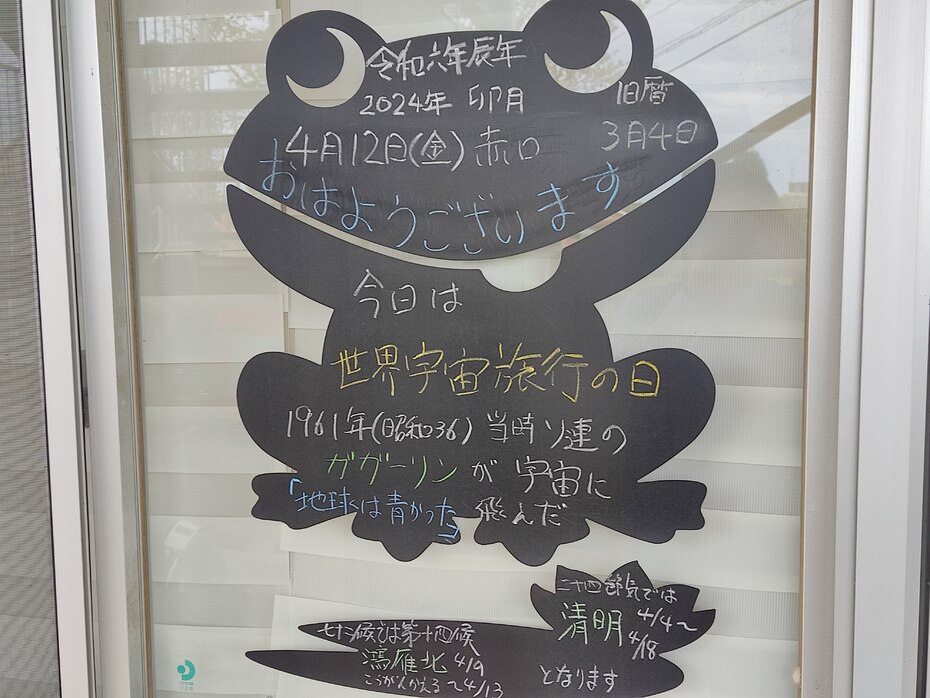 令和六年辰年
2024年 卯月
旧暦
3月4日
4月12日(金) 赤口
おはようございます
今日は
世界宇宙旅行の日
1961年(昭和36) 当時ソ連の
ガガーリンが宇宙に
「地球は青かった」飛んだ
二十四節気では
清明 4/4〜
4/18
となります
七十二候では第十四候
鴻雁北 4/9
こうがんかえる 〜4/13